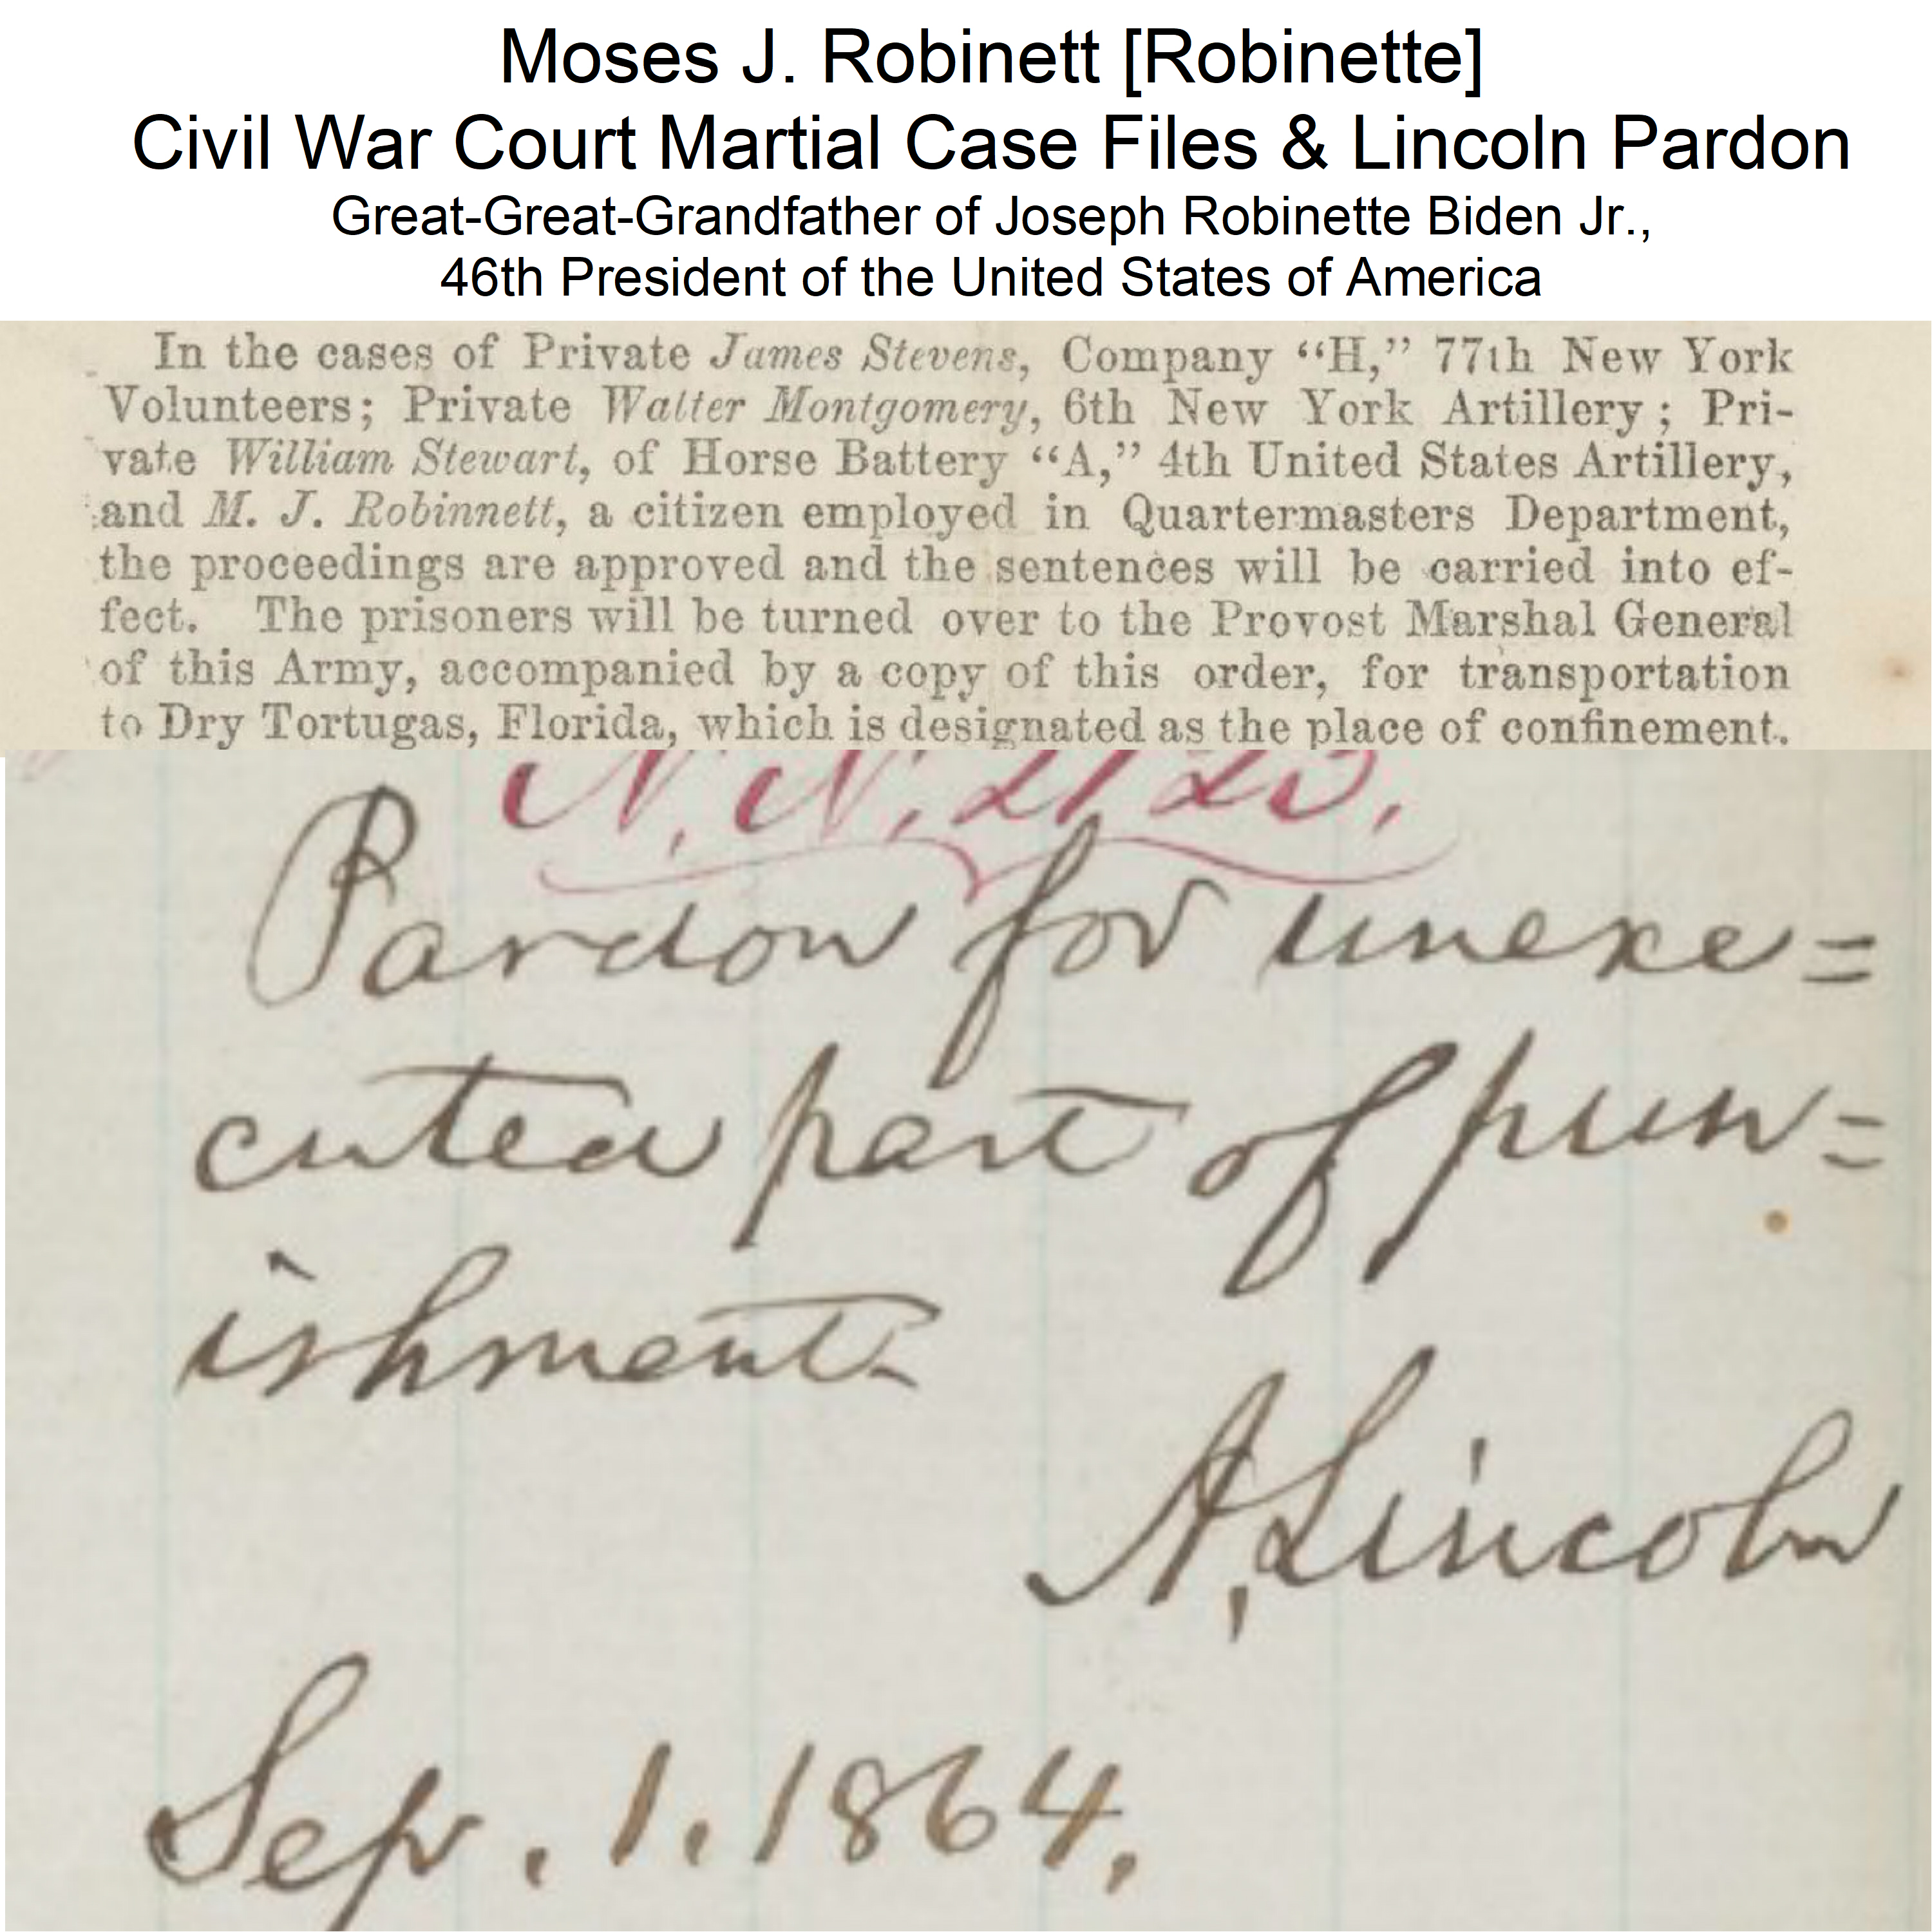 Moses J. Robinett [Robinette]
Civil War Court Martial Case Files & Lincoln Pardon
Great-Great-Grandfather of Joseph Robinette Biden Jr.,
46th President of the United States of America
In the cases of Private James Stevens, Company “H,” 77th New York
Volunteers; Private Walter Montgomery, 6th New York Artillery; Pri-
vate William Stewart, of Horse Battery “A,” 4th United States Artillery,
and M. J. Robinnett, a citizen employed in Quartermasters Department,
the proceedings are approved and the sentences will be carried into ef-
fect. The prisoners will be turned over to the Provost Marshal General
of this Army, accompanied by a copy of this order, for transportation
to Dry Tortugas, Florida, which is designated as the place of confinement.
N.N. 2125.
Pardon for unexe=
cuted part of pun=
ishment-
A. Lincoln
Sep. 1. 1864.